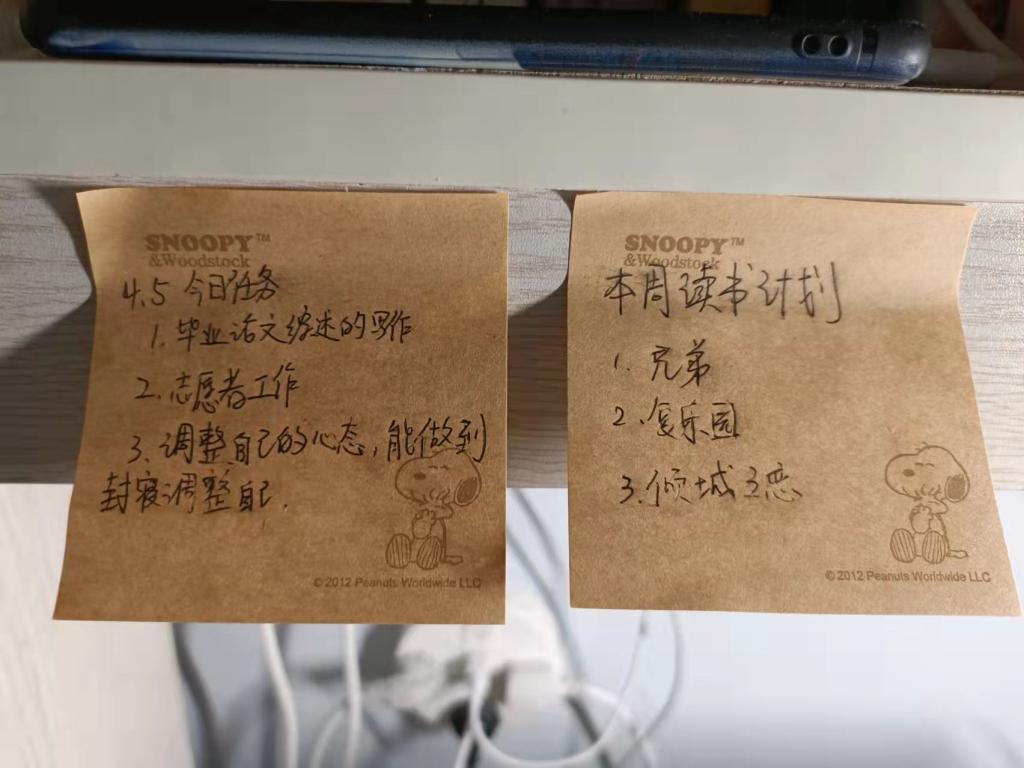 SNOOPY™
&Woodstock
4.5 今日任务
1. 毕业论文综述的写作
2. 志愿者工作
3. 调整自己的心态，能做到
封寝调整自己.
© 2012 Peanuts Worldwide LLC
SNOOPY™
&Woodstock
本周读书计划
1. 兄弟
2. 复乐园
3. 倾城之恋
© 2012 Peanuts Worldwide LLC